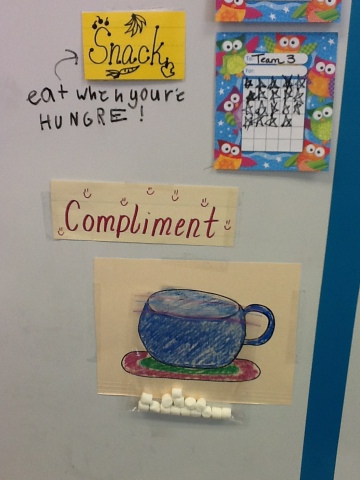 Snack
eat when your'e
HUNGRE!
To: Team 3
For:
Compliment